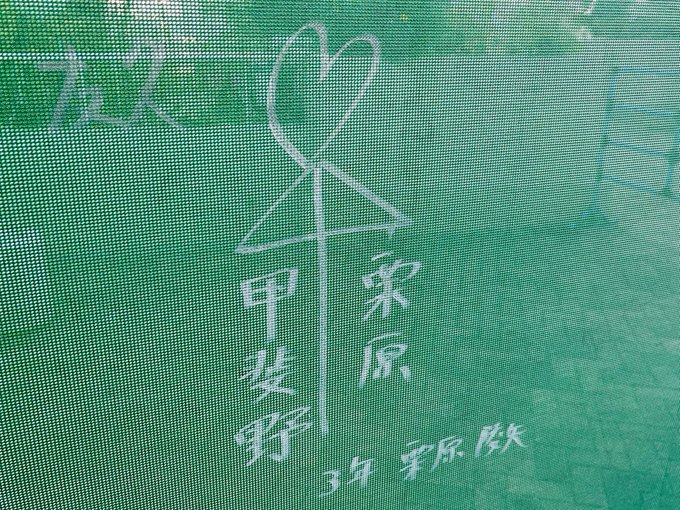 栗原
甲斐野
3年 栗原 陵矢